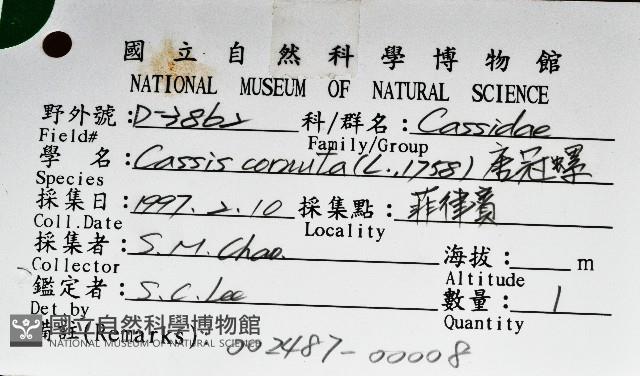 國立自然科學博物館
NATIONAL MUSEUM OF NATURAL SCIENCE
野外號：D-3862 科/群名：Cassidae
Field# Family/Group
學 名：Cassis cornuta (L., 1758) 唐冠螺
Species
採集日：1997. 2. 10 採集點：菲律賓
Coll.Date Locality
採集者：S. M. Chao 海拔：m
Collector Altitude
鑑定者：S. C. Lee 數量：1
Det.by Quantity
備註(Remarks)：002487-00008
國立自然科學博物館
NATIONAL MUSEUM OF NATURAL SCIENCE